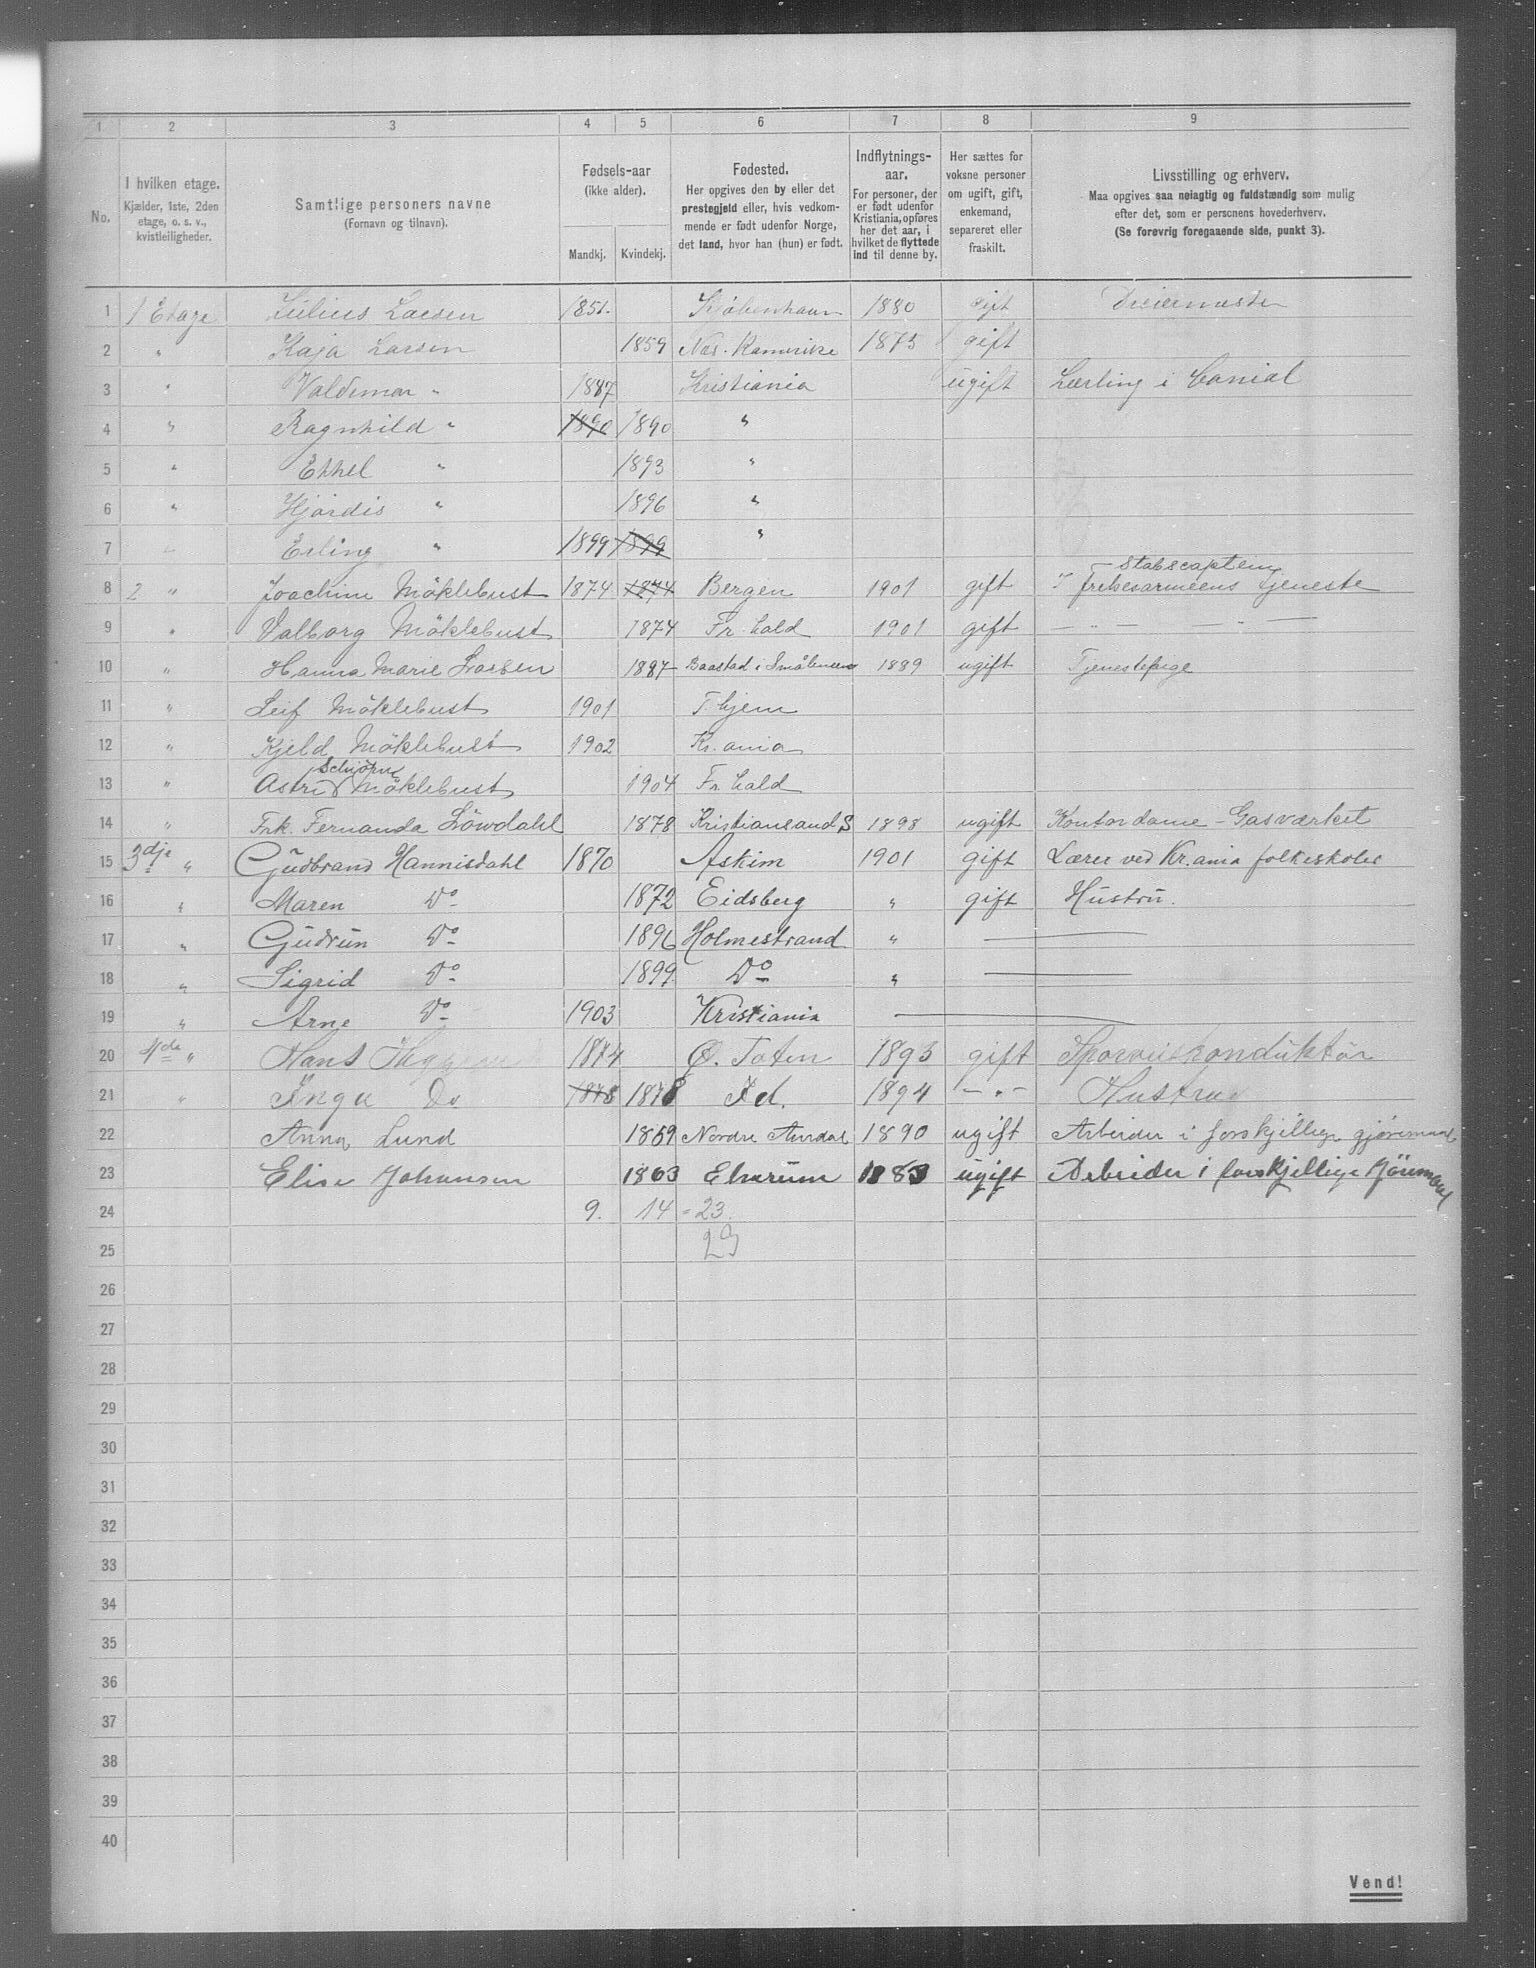 1 2 3 4 5 6 7 8 9
No.
I hvilken etage.
Kjælder, 1ste, 2den
etage, o. s. v.,
kvistleiligheder.
Samtlige personers navne
(Fornavn og tilnavn).
Fødsels-aar
(ikke alder).
Mandkj. Kvindekj.
Fødested.
Her opgives den by eller det
prestegjeld eller, hvis vedkom-
mende er født udenfor Norge,
det land, hvor han (hun) er født.
Indflytnings-
aar.
For personer, der
er født udenfor
Kristiania, opføres
her det aar, i
hvilket de flyttede
ind til denne by.
Her sættes for
voksne personer
om ugift, gift,
enkemand,
separeret eller
fraskilt.
Livsstilling og erhverv.
Maa opgives saa nøiagtig og fuldstændig som mulig
efter det, som er personens hovederhverv.
(Se forøvrig foregaaende side, punkt 3).
1 1 Etage Julius Larsen 1851. Kjøbenhavn 1880 gift Dreiermester
2 " Kaja Larsen 1859 Næs. Romerike 1873 gift
3 " Valdemar " 1887 Kristiania ugift Lærling i
4 " Ragnhild " 1890 1890 "
5 " Ethel " 1893 "
6 " Hjördis " 1896 "
7 " Erling " 1899 1899 "
Stabscaptein
8 2 " Joachim Möklebust 1874 1874 Bergen 1901 gift I frelsesarmeens tjeneste
9 " Valborg Möklebust 1874 Fr. hald 1901 gift — " — " —
10 " Hanna Marie Larsen 1887 Baastad i Smålenene 1889 ugift Tjenestepige
11 " Leif Möklebust 1901 T. hjem
12 " Kjeld Möklebust 1902 Kr. ania
Schiörn
13 " Astrid Möklebust 1904 Fr. hald
14 " Frk. Fernanda Löwdahl 1878 Kristiansand S 1898 ugift Kontordame - Gasværket
15 3dje " Gudbrand Hannisdahl 1870 Askim 1901 gift Lærer ved Kr.ania folkeskoler
16 " Maren Do 1872 Eidsberg " gift Hustru.
17 " Gudrun Do 1896 Holmestrand " —
18 " Sigrid Do 1899 Do " —
19 " Arne Do 1903 Kristiania —
20 4de " Hans 1874 Ø. Toten 1893 gift Sporveiskonduktör
21 " Inga Do 1878 1878 Id. 1894 — " — Hustru
22 Anna Lund 1869 Nordre Aurdal 1890 ugift Arbeider i forskjellige gjøremaal
23 Elise Johansen 1863 Elverum 1883 ugift Arbeider i forskjellige Gjöremaal
24 9. 14 = 23
25 23
26
27
28
29
30
31
32
33
34
35
36
37
38
39
40
Vend!